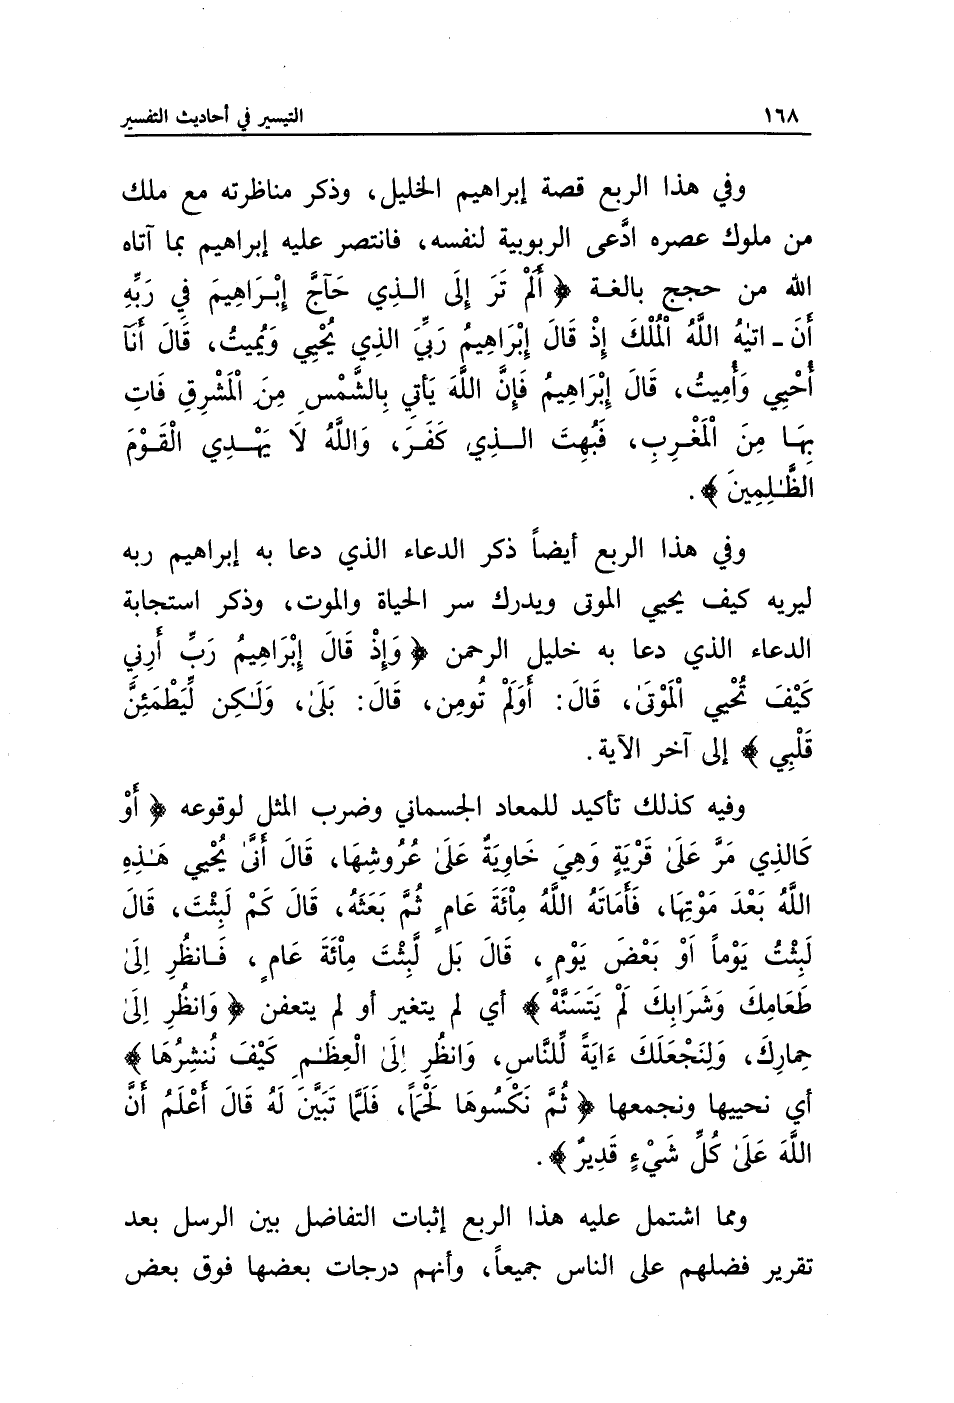 ١٦٨ التيسير في أحاديث التفسير
وفي هذا الربع قصة إبراهيم الخليل، وذكر مناظرته مع ملك
من ملوك عصره ادَّعى الربوبية لنفسه، فانتصر عليه إبراهيم بما آتاه
الله من حجج بالغة ﴿ أَلَمْ تَرَ إِلَى الـذِي حَآجَّ إِبْـرَاهِيمَ فِي رَبِّهِ
أَنَ ـ اتيٰهُ اللَّهُ الْمُلْكَ إِذْ قَالَ إِبْرَاهِيمُ رَبِّيَ الذِي يُحْيِي وَيُمِيتُ، قَالَ أَنَآ
أُحْيِي وَأُمِيتُ، قَالَ إِبْرَاهِيمُ فَإِنَّ اللَّهَ يَأْتِي بِالشَّمْسِ مِنَ الْمَشْرِقِ فَاتِ
بِهَا مِنَ الْمَغْرِبِ، فَبُهِتَ الـذِي كَفَرَ، وَاللَّهُ لَا يَهْـدِي الْقَوْمَ
الظَّـٰلِمِينَ ﴾.
وفي هذا الربع أيضاً ذكر الدعاء الذي دعا به إبراهيم ربه
ليريه كيف يحيي الموتى ويدرك سر الحياة والموت، وذكر استجابة
الدعاء الذي دعا به خليل الرحمن ﴿ وَإِذْ قَالَ إِبْرَاهِيمُ رَبِّ أَرِنِي
كَيْفَ تُحْيِي الْمَوْتَىٰ، قَالَ: أَوَلَمْ تُومِن، قَالَ: بَلَىٰ، وَلَـٰكِن لِّيَطْمَئِنَّ
قَلْبِي ﴾ إلى آخر الآية.
وفيه كذلك تأكيد للمعاد الجسماني وضرب المثل لوقوعه ﴿ أَوْ
كَالذِي مَرَّ عَلَىٰ قَرْيَةٍ وَهِيَ خَاوِيَةٌ عَلَىٰ عُرُوشِهَا، قَالَ أَنَّىٰ يُحْيِي هَـٰذِهِ
اللَّهُ بَعْدَ مَوْتِهَا، فَأَمَاتَهُ اللَّهُ مِاْئَةَ عَامٍ ثُمَّ بَعَثَهُ، قَالَ كَمْ لَبِثْتَ، قَالَ
لَبِثْتُ يَوْماً اَوْ بَعْضَ يَوْمٍ، قَالَ بَل لَّبِثْتَ مِاْئَةَ عَامٍ، فَـانظُرِ اِلَىٰ
طَعَامِكَ وَشَرَابِكَ لَمْ يَتَسَنَّهْ ﴾ أي لم يتغير أو لم يتعفن ﴿ وَانظُرِ اِلَىٰ
حِمارِكَ، وَلِنَجْعَلَكَ ءَايَةً لِّلنَّاسِ، وَانظُرِ اِلَى الْعِظَـٰمِ كَيْفَ نُنشِرُهَا ﴾
أي نحييها ونجمعها ﴿ ثُمَّ نَكْسُوهَا لَحْماً، فَلَمَّا تَبَيَّنَ لَهُ قَالَ أَعْلَمُ أَنَّ
اللَّهَ عَلَىٰ كُلِّ شَيْءٍ قَدِيرٌ ﴾.
ومما اشتمل عليه هذا الربع إثبات التفاضل بين الرسل بعد
تقرير فضلهم على الناس جميعاً، وأنهم درجات بعضها فوق بعض